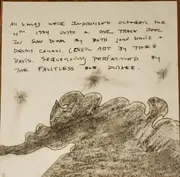 ALL SONGS WERE IMPROVISED OCTOBER THE
4TH 1984 ONTO A ONE TRACK DECK
IN SAN DIMAS BY BOTH JOHN DAVIS &
DENNIS CALLACI. COVER ART BY THEO
DAVIS. SEQUENCING PERFORMED BY
THE FAULTLESS BOB DURKEE.